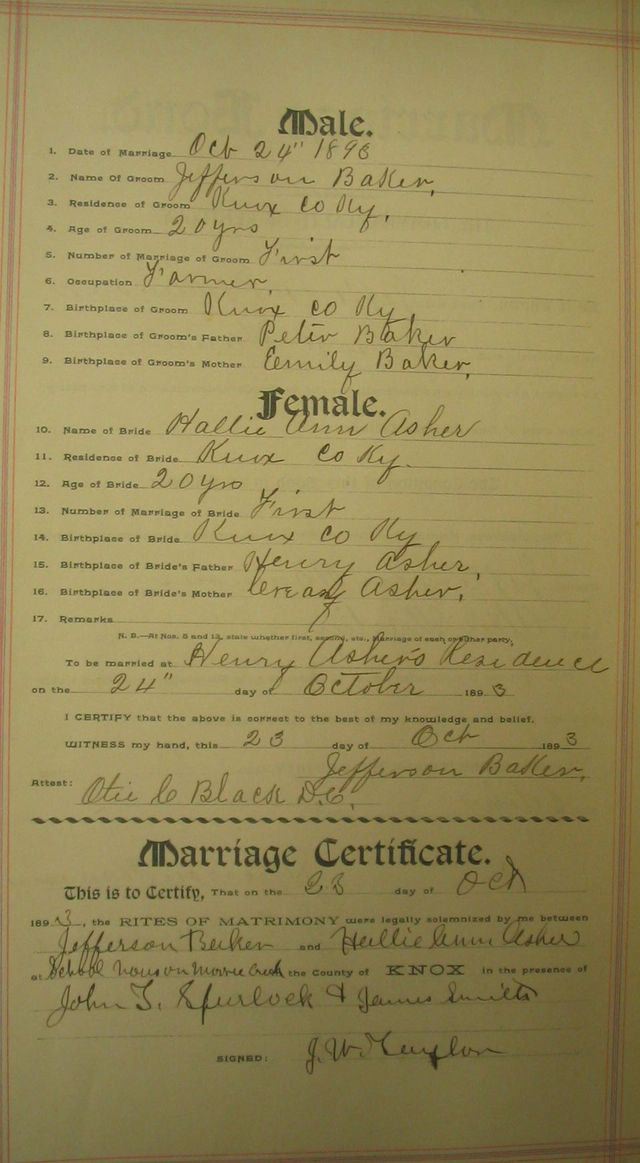 Male.
1. Date of Marriage Oct 24" 1893
2. Name Of Groom Jefferson Baker,
3. Residence of Groom Knox Co Ky,
4. Age of Groom 20 yrs
5. Number of Marriage of Groom First
6. Occupation Farmer,
7. Birthplace of Groom Knox Co Ky
8. Birthplace of Groom's Father Peter Baker
9. Birthplace of Groom's Mother Emily Baker,
Female.
10. Name of Bride Hallie Ann Asher
11. Residence of Bride Knox Co Ky.
12. Age of Bride 20 yrs
13. Number of Marriage of Bride First
14. Birthplace of Bride Knox Co Ky
15. Birthplace of Bride's Father Henry Asher,
16. Birthplace of Bride's Mother Asher,
17. Remarks
N. B.—At Nos. 5 and 13, state whether first, second, etc., Marriage of each or either party,
To be married at Henry Asher's Residence
on the 24" day of October 1893
I CERTIFY that the above is correct to the best of my knowledge and belief.
WITNESS my hand, this 23 day of Oct 1893
Jefferson Baker,
Attest: Otis C Black D.C.
Marriage Certificate.
This is to Certify, That on the 23 day of Oct
1893, the RITES OF MATRIMONY were legally solemnized by me between
Jefferson Baker and Hallie Ann Asher
at School House on Creek the County of KNOX in the presence of
John T. Spurlock & James Smith
SIGNED: J. W.